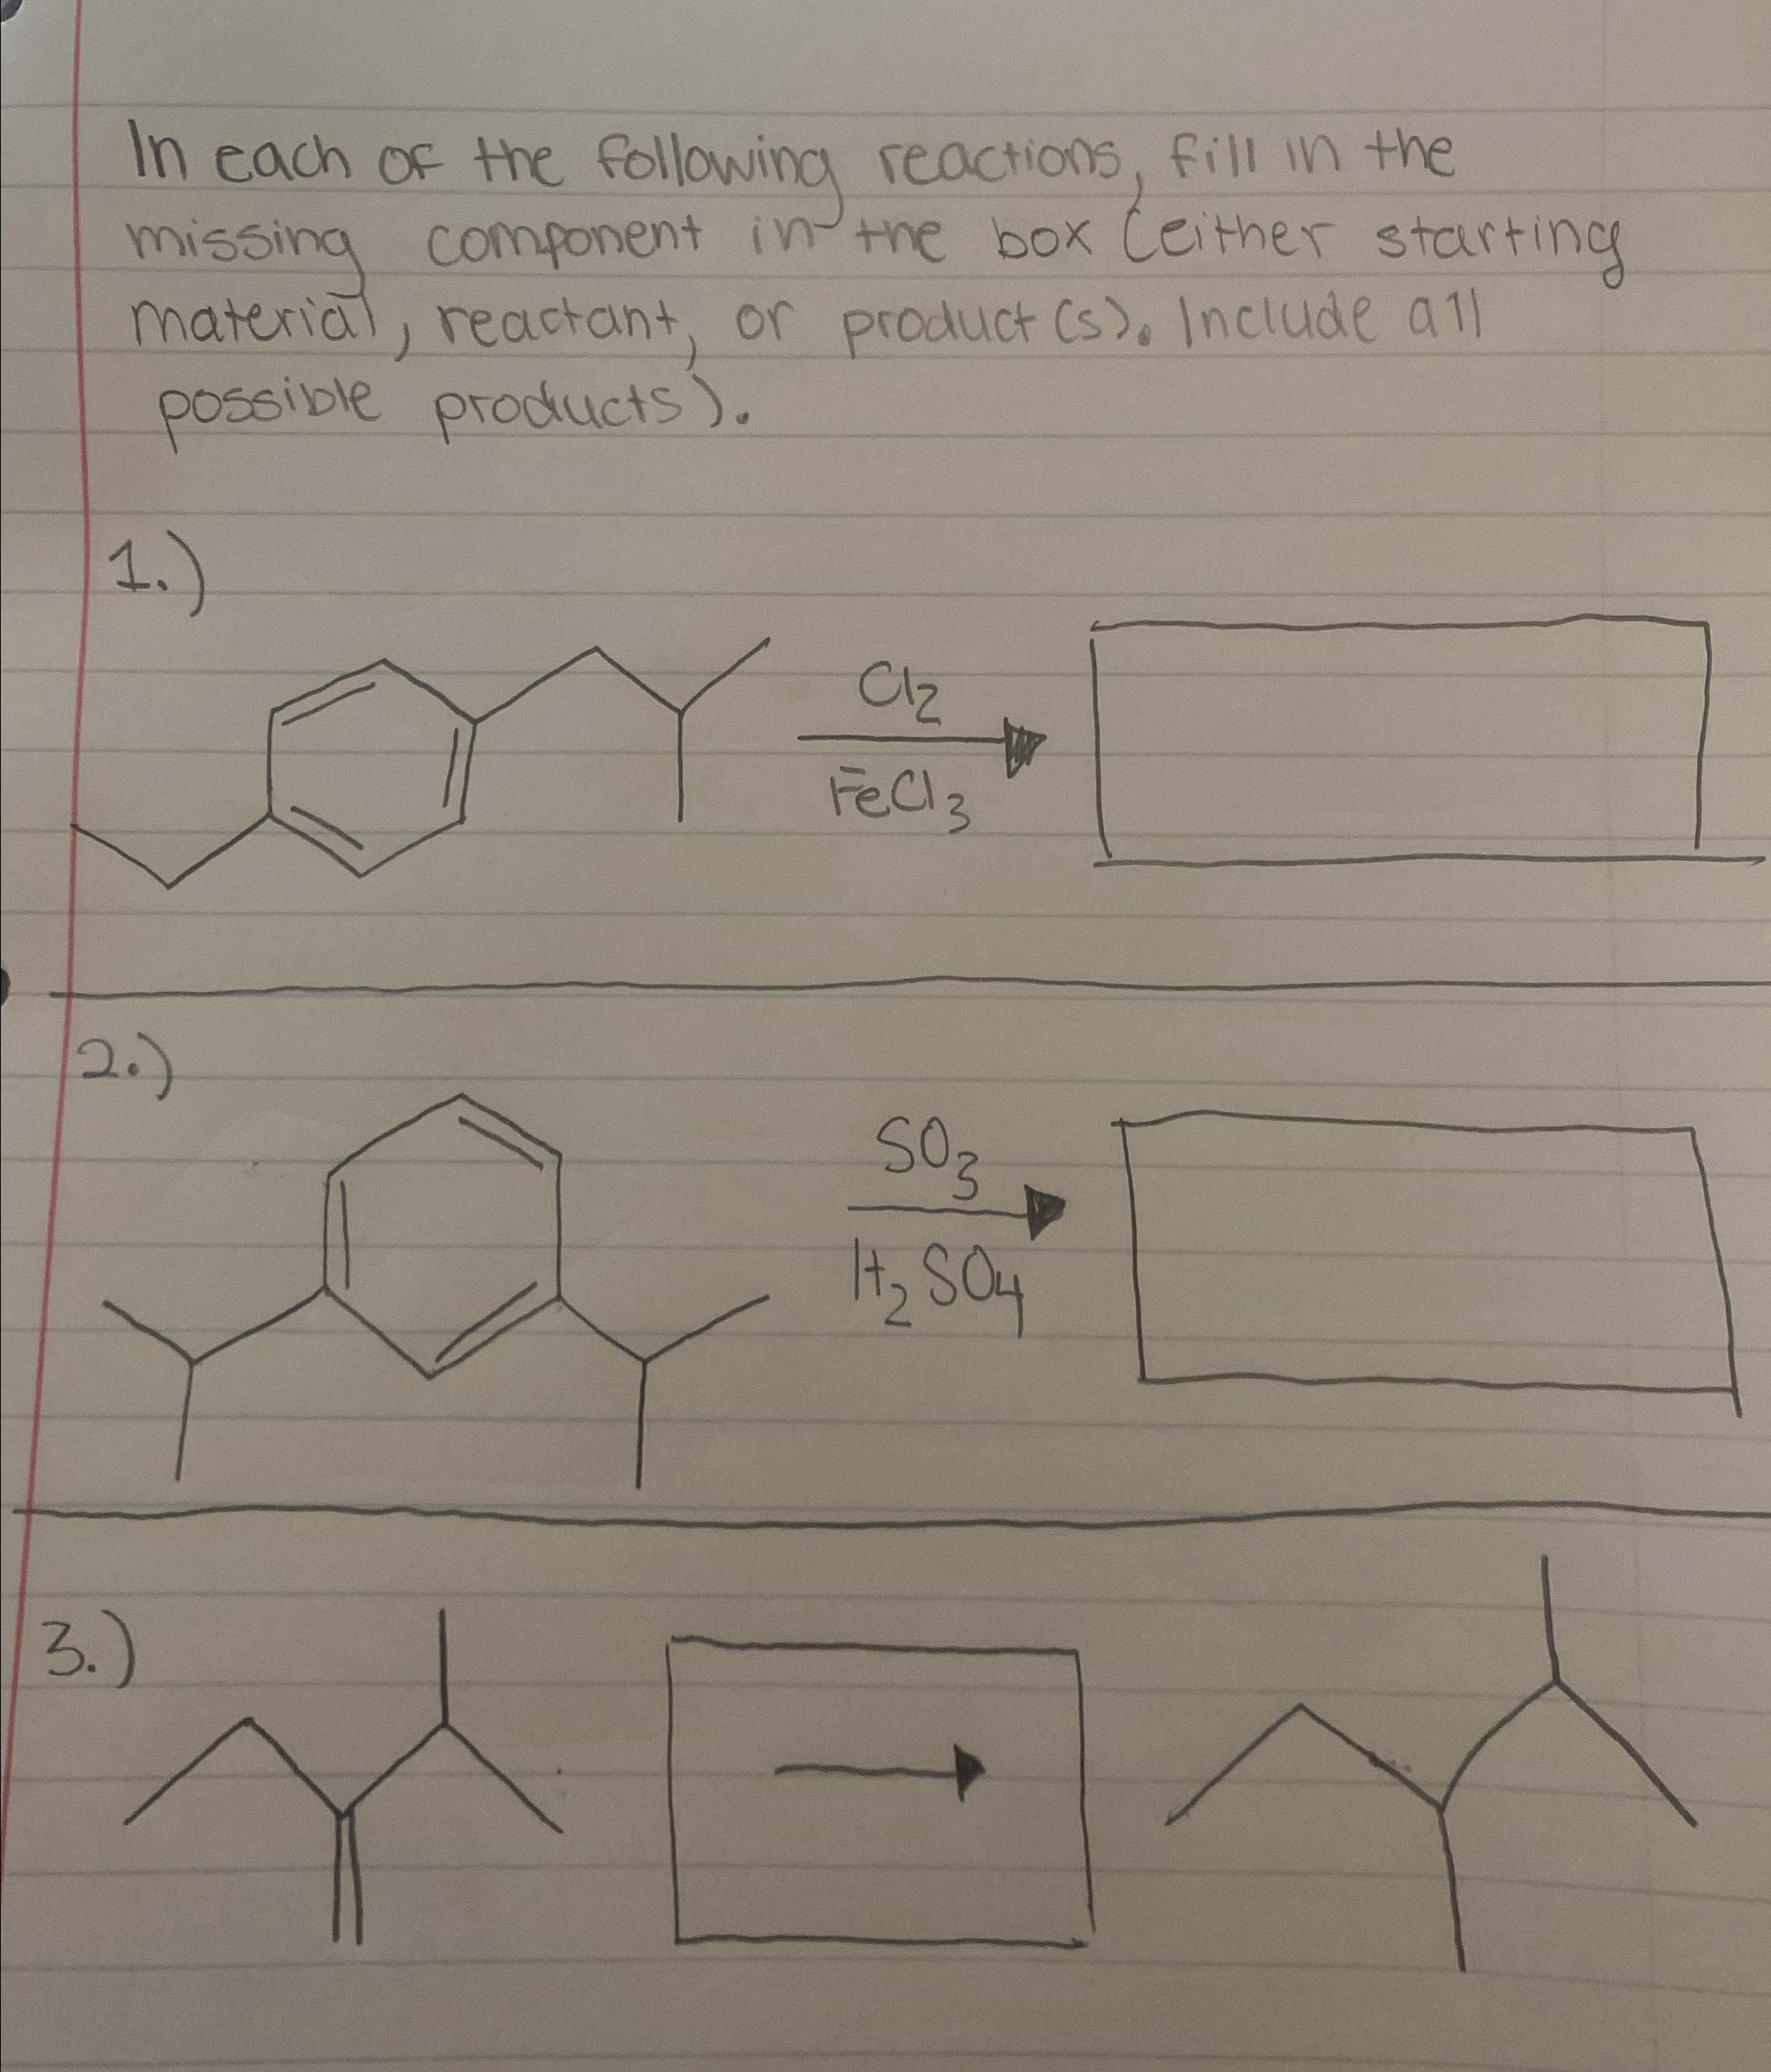 In each of the following reactions, fill in the
missing component in the box (either starting
material, reactant, or product(s). Include all
possible products).
1.)
Cl2
FeCl3
2.)
SO3
H2SO4
3.)